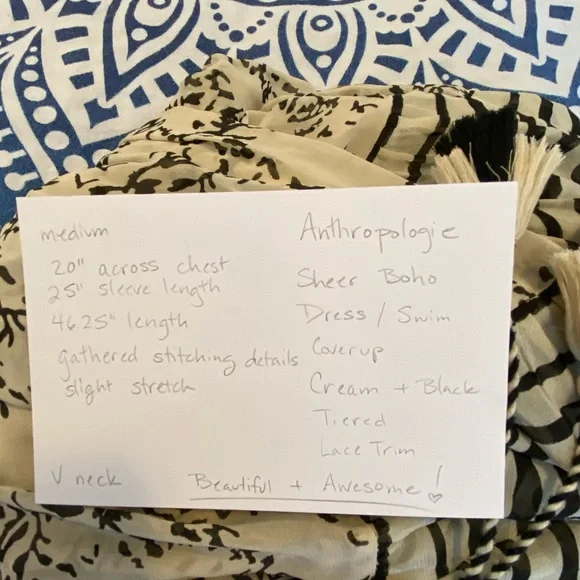 medium
20" across chest
25" sleeve length
46.25" length
gathered stitching details
slight stretch
V neck
Anthropologie
Sheer Boho
Dress / Swim
Coverup
Cream + Black
Tiered
Lace Trim
Beautiful + Awesome!